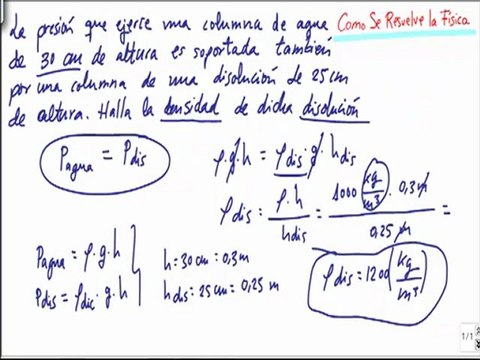 La presión que ejerce una columna de agua
Como Se Resuelve la Física
de 30 cm de altura es soportada también
por una columna de una disolución de 25 cm
de altura. Halla la densidad de dicha disolución
Pagua = Pdis
ρ·g·h = ρdis·g·hdis
ρdis = ρ·h / hdis = 1000 kg/m³ · 0,3 m / 0,25 m =
Pagua = ρ·g·h
Pdis = ρdis·g·h
h = 30 cm = 0,3 m
hdis = 25 cm = 0,25 m
ρdis = 1200 (kg/m³)
1/1